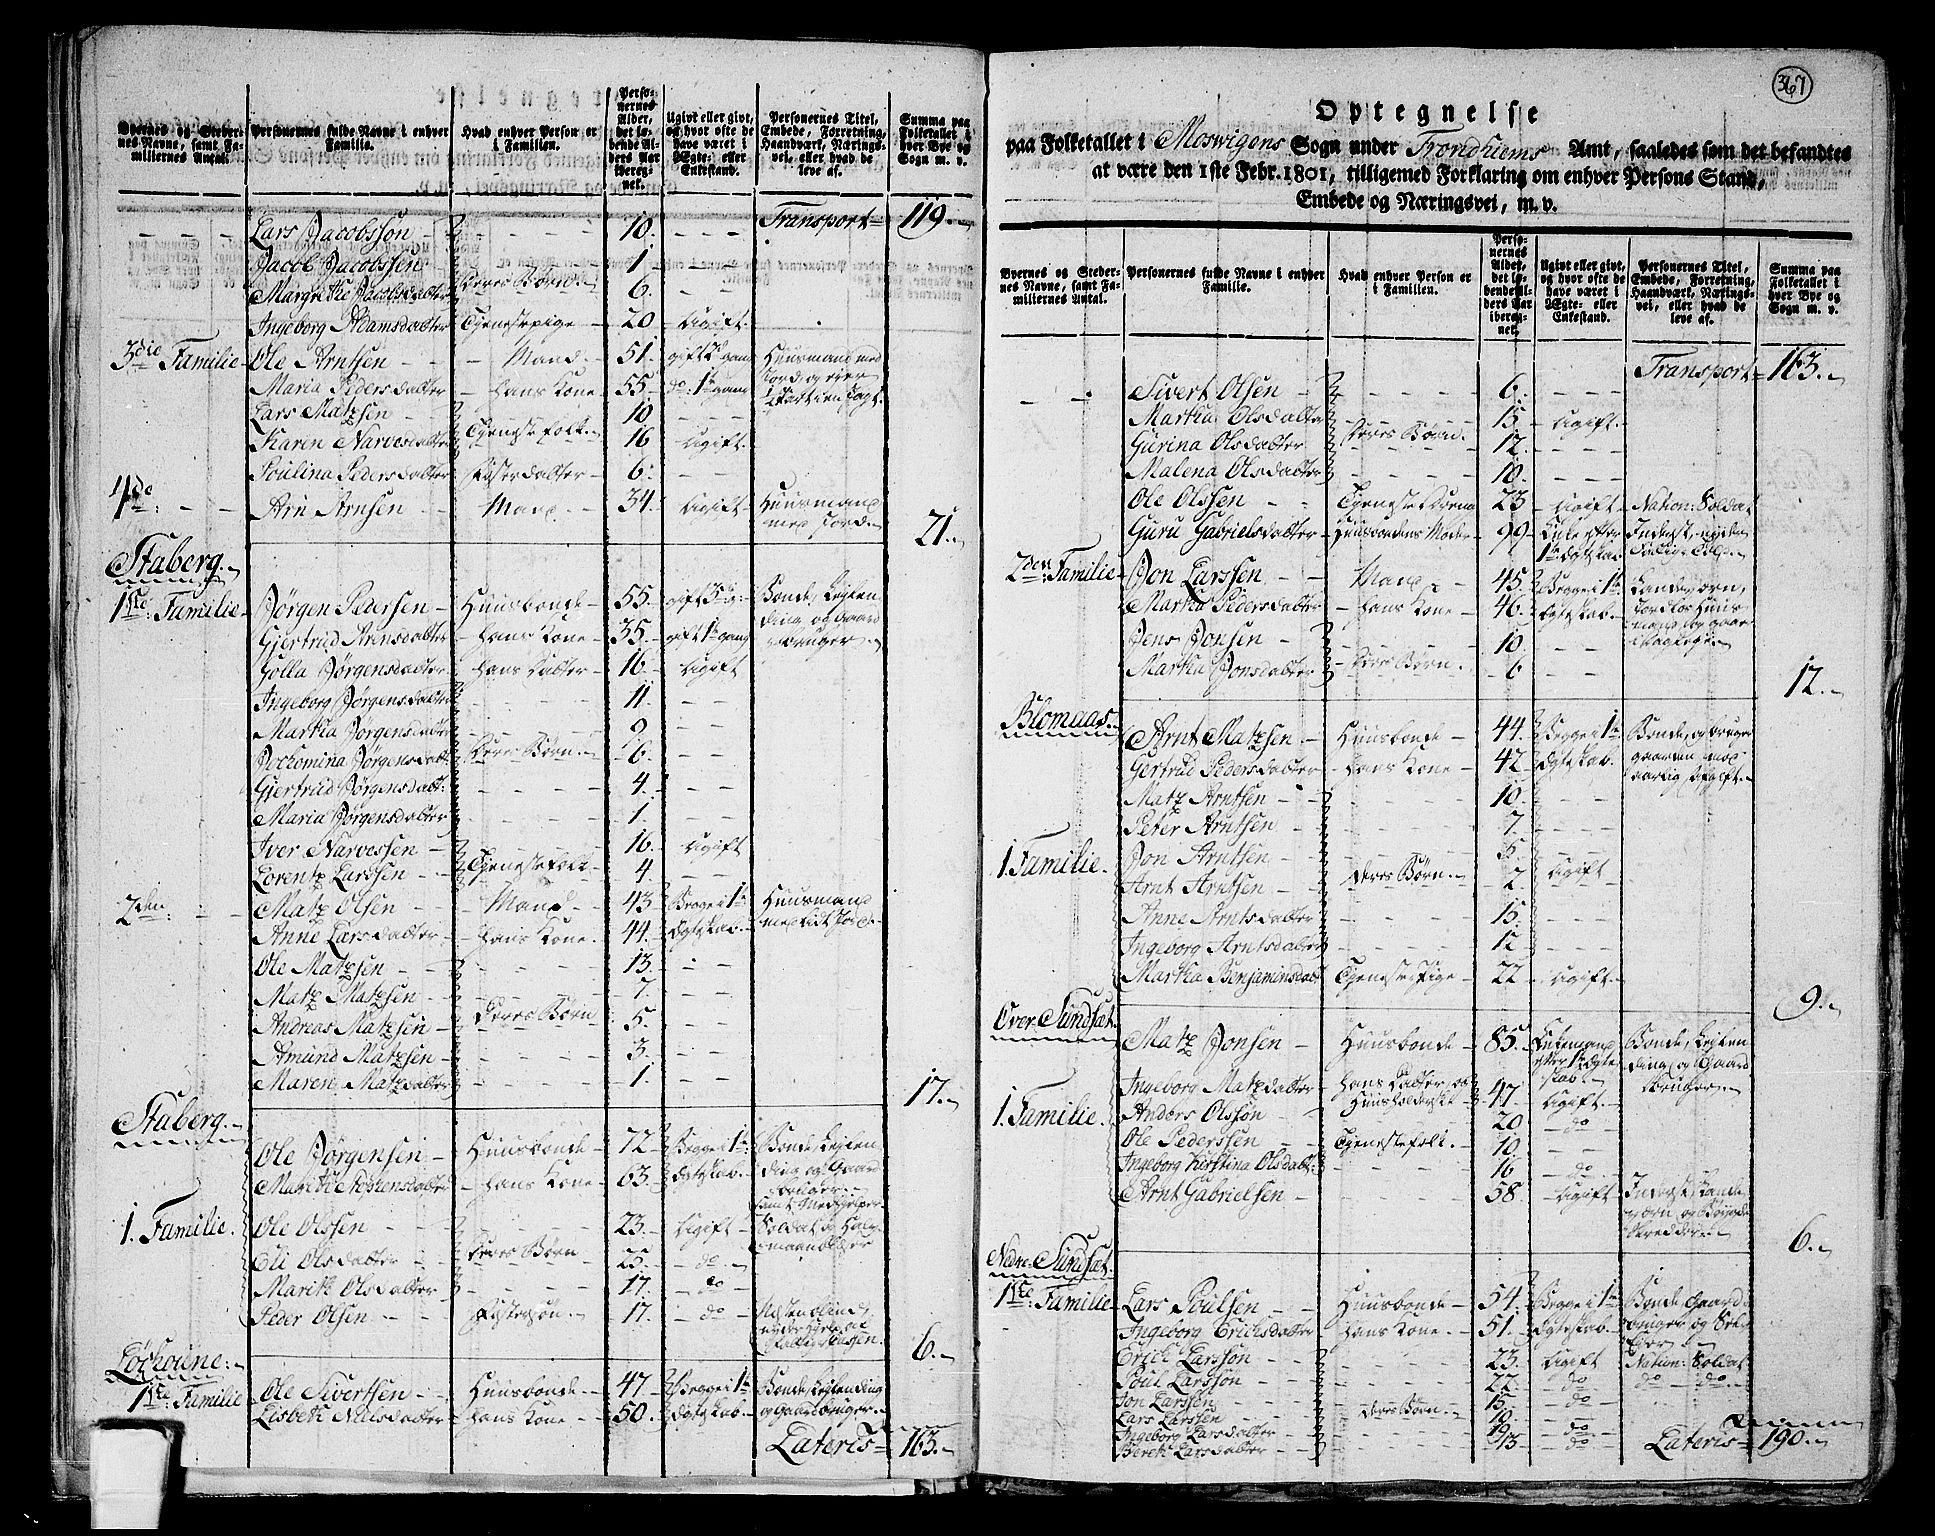 Byernes og Steder- nes Navne, samt Fa- miliernes Antal.
Personernes fulde Navne i enhver Familie.
Hvad enhver Person er i Familien.
Perso- nernes Alder, det lø- bende Al- ders Aar iberegnet.
Ugivt eller givt, og hvor ofte de have været i Ægte- eller Enkestand.
Personernes Titel, Embede, Forretning, Haandværk, Nærings- vei, eller hvad de leve af.
Summa paa Folketallet i hver Bye og Sogn m. v.
Lars Jacobssøn 10. Transport= 119.
Jacob Jacobssen 1
Margrethe Jacobsdatter Deres Børn 6.
Ingeborg Adamsdatter Tjenestepige 20 Ugift
3die Familie Ole Arntsen Mand 51. gift 2den gang Huusmand med
Maria Pedersdatter hans Kone 55. do. 1te gang Jord, og eier
Lars Matzsen 10 Part i en Jagt.
Karen Narvesdatter Tjenestefolk 16 Ugift
Poulina Pedersdatter Søsterdatter 6.
4de Arn Arnsen Mand 34. Ugift Huusmand
med Jord. 21.
Staberg.
1ste Familie Jørgen Pedersen Huusbonde 55. gift 3die g: Bonde, Leylen
Gjertrud Arensdatter hans Kone 35. gift 1te gang ding og Gaard
Golla Jørgensdatter hans Datter 16 Ugift bruger
Ingeborg Jørgensdatter 11.
Martha Jørgensdatter 9
Jochomina Jørgensdatt: Deres Børn 6.
Gjertrud Jørgensdat: 4.
Maria Jørgensdatter 1.
Iver Narvessen 16. Ugift
Lorentz Larssen Tjenestefolk 4
2den Matz Olsen Mand 43 Begge i 1te Huusmand
Anne Larsdatter hans Kone 44. Ægteskab. med lidt Jord.
Ole Matzsen 13.
Matz Matzsen 7.
Andreas Matzsen Deres Børn 5.
Amund Matzsen 3.
Maren Matzdatter 1. 17.
Staberg.
Ole Jørgensen Huusbonde 72 Begge i 1te Bonde, Leylen
Marithe Stephensdatter hans Kone 63. Ægteskab. ding og Gaard
bruger
1. Familie. Ole Olssen 23. Ugift Soldat og
Eli Olsdatter Deres Børn 25. do
Marith Olsdatter 17. do
Peder Olsen Søstersøn 17. do
6.
Løchøune:
1ste Familie Ole Sivertsen Huusbonde 47 Begge i 1te Bonde, Leylending
Lisbeth Nielsdatter hans Kone 50. Ægteskab. og Gaardbruger.
Lateris= 163.
367
Optegnelse
paa Folketallet i Moswigens Sogn under Trondhiems Amt, saaledes som det befandtes
at være den 1ste Febr. 1801, tilligemed Forklaring om enhver Persons Stand,
Embede og Næringsvei, m. v.
Byernes og Steder- nes Navne, samt Fa- miliernes Antal.
Personernes fulde Navne i enhver Familie.
Hvad enhver Person er i Familien.
Perso- nernes Alder, det lø- bende Al- ders Aar iberegnet.
Ugivt eller givt, og hvor ofte de have været i Ægte- eller Enkestand.
Personernes Titel, Embede, Forretning, Haandværk, Nærings- vei, eller hvad de leve af.
Summa paa Folketallet i hver Bye og Sogn m. v.
Transport= 163.
Sivert Olsen 6.
Martha Olsdatter 15 Ugift
Gurina Olsdatter Deres Børn 12.
Malena Olsdatter 10.
Ole Olssen 23 Ugift Nation: Soldat
Guru Gabrielsdatter Huusbondens Moder 99 Enke efter Inderst, nyder
1te Ægteskab.
2den Familie Jon Larssen Mand 45 Begge i 1te Landeværn,
Martha Pedersdatter hans Kone 46. Ægteskab. Jordløs Huus
Jens Jonsen 10.
Martha Jonsdatter Deres Børn. 6
12.
Blomaas.
Arnt Matzsen Huusbonde 44. Begge i 1te Bonde, og bruger
Gertrud Pedersdatter hans Kone 42 Ægteskab. gaarden mod
Matz Arntsen 10. aarlig Afgift.
Peter Arntsen 7
1. Familie. Jon Arntsen 5.
Arnt Arntsen Deres Børn. 2. Ugift
Anne Arntsdatter 15.
Ingeborg Arntsdatter 12
Martha Benjaminsdatt Tjenestepige 22 Ugift.
9.
Over Sundsæt.
Matz Jonsen Huusbonde 85. Enkemand Bonde, Leylen
efter 1te Ægte ding, og Gaard
skab. bruger
Ingeborg Matzdatter hans Datter, og Huusholderske 47 Ugift.
1. Familie. Anders Olssøn 20 do
Ole Pederssen Tjenestefolk. 10.
Ingeborg Kirstina Olsdatt: 16 do
Arnt Gabrielsen 58. Ugift Inderst, Lande
værn og Bøygde
Skredder. 6.
Nedre Sundsæt.
1ste Familie Lars Poulsen Huusbonde 54. Begge i 1te Bonde Gaard
Ingeborg Erichsdatter hans Kone 51. Ægteskab. bruger og
Erich Larssøn 23. Ugift Nation: Soldat
Poul Larssøn 22. do do do.
Jon Larssen 15. do
Lars Larssen Deres Børn. 10.
Ingeborg Larsdatter 19 do
Bereth Larsdatter 13 do Lateris= 190.